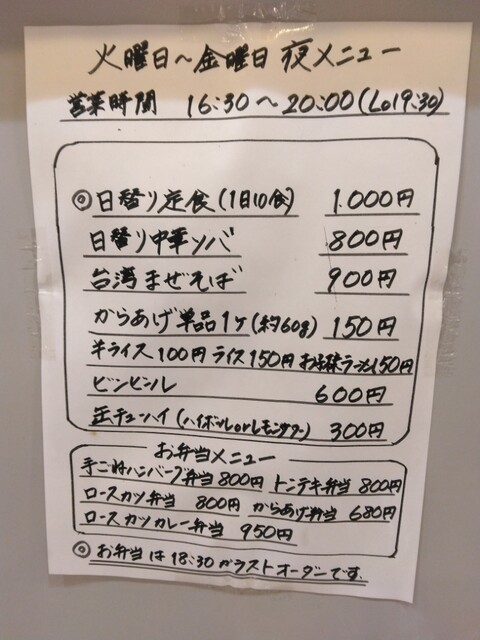 火曜日～金曜日 夜メニュー
営業時間 16:30～20:00(Lo19:30)
◎日替り定食(1日10食) 1.000円
日替り中華ソバ 800円
台湾まぜそば 900円
からあげ単品1ヶ(約60g) 150円
半ライス100円 ライス150円 お子様ラーメン150円
ビンビール 600円
缶チューハイ(ハイボールorレモンサワー) 300円
お弁当メニュー
手ごねハンバーグ弁当800円 トンテキ弁当 800円
ロースカツ弁当 800円 からあげ弁当 680円
ロースカツカレー弁当 950円
◎お弁当は18:30がラストオーダーです.